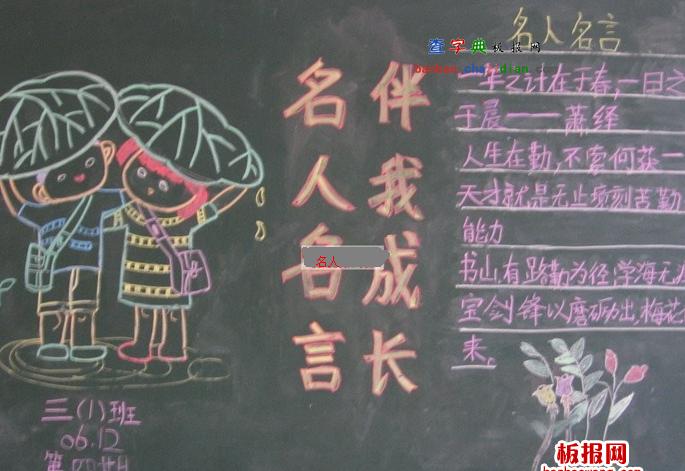 名人名言
查字典板报网
一年之计在于春,一日之
于晨——萧绎
人生在勤,不索何获一
天才就是无止境刻苦勤
能力
书山有路勤为径,学海无
宝剑锋从磨砺出,梅花
来。
名人名言
伴我成长
名人
三(1)班
06.12
第四
板报网